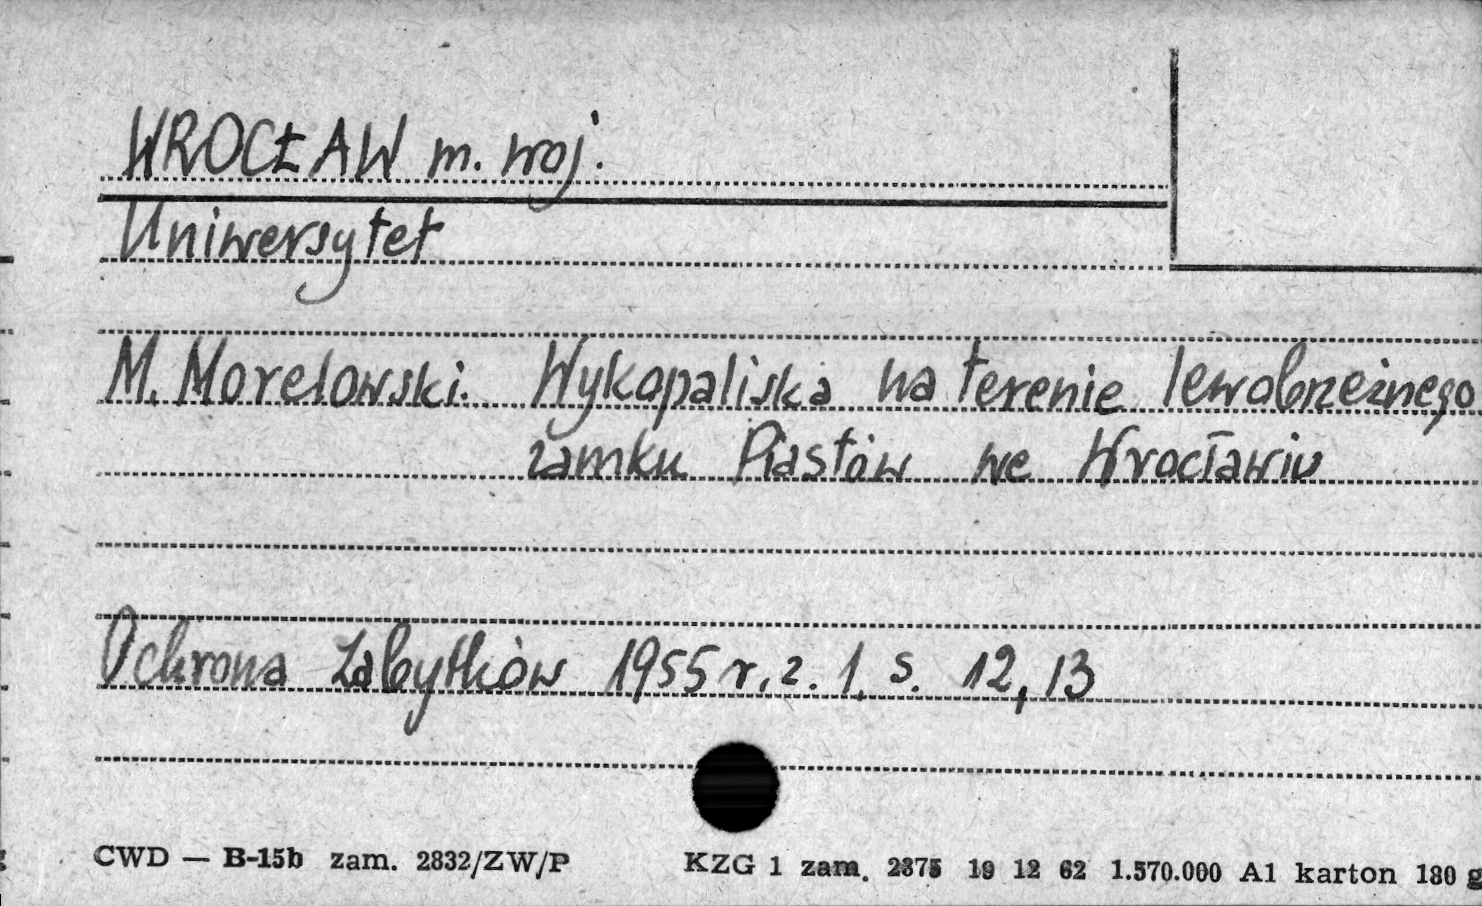 WROCŁAW m. woj.
Uniwersytet
M. Morelowski. Wykopaliska na terenie lewobrzeżnego
zamku Piastów we Wrocławiu
Ochrona Zabytków 1955 r. z. 1. s. 12, 13
CWD — B-15b zam. 2832/ZW/P KZG 1 zam. 2875 19 12 62 1.570.000 A1 karton 180 g